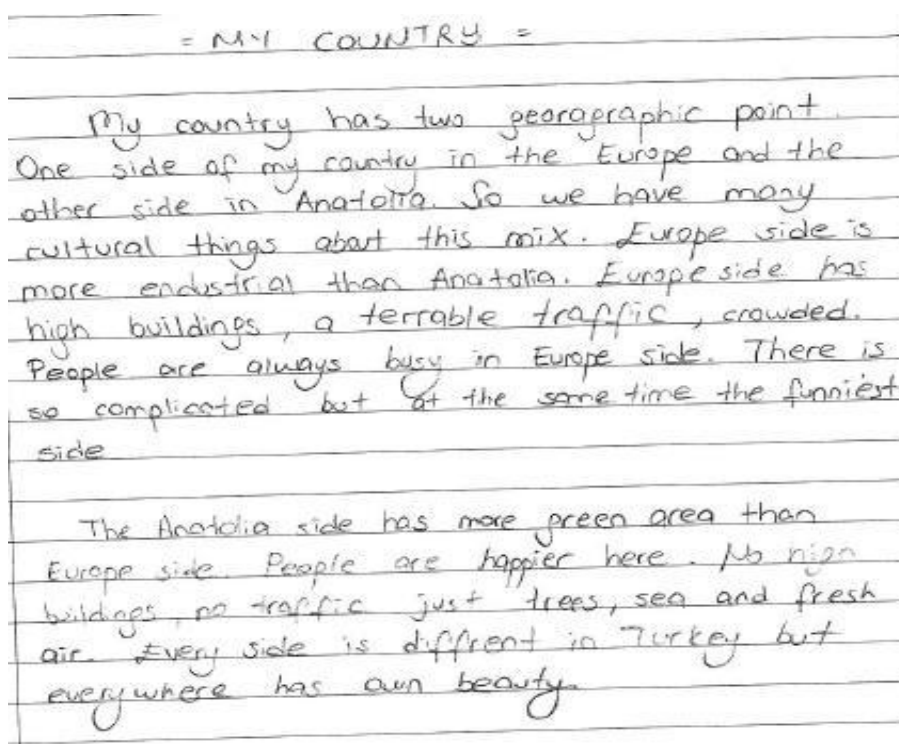 = MY COUNTRY =
My country has two georagraphic point.
One side of my country in the Europe and the
other side in Anatolia. So we have many
cultural things about this mix. Europe side is
more endustrial than Anatolia. Europe side has
high buildings, a terrable traffic, crowded.
People are always busy in Europe side. There is
so complicated but at the same time the funniest
side
The Anatolia side has more green area than
Europe side. People are happier here. No high
buildings, no traffic just trees, sea and fresh
air. Every side is diffrent in Turkey but
everywhere has own beauty.